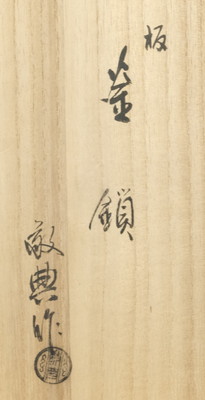 板
釜鎖
敬典作